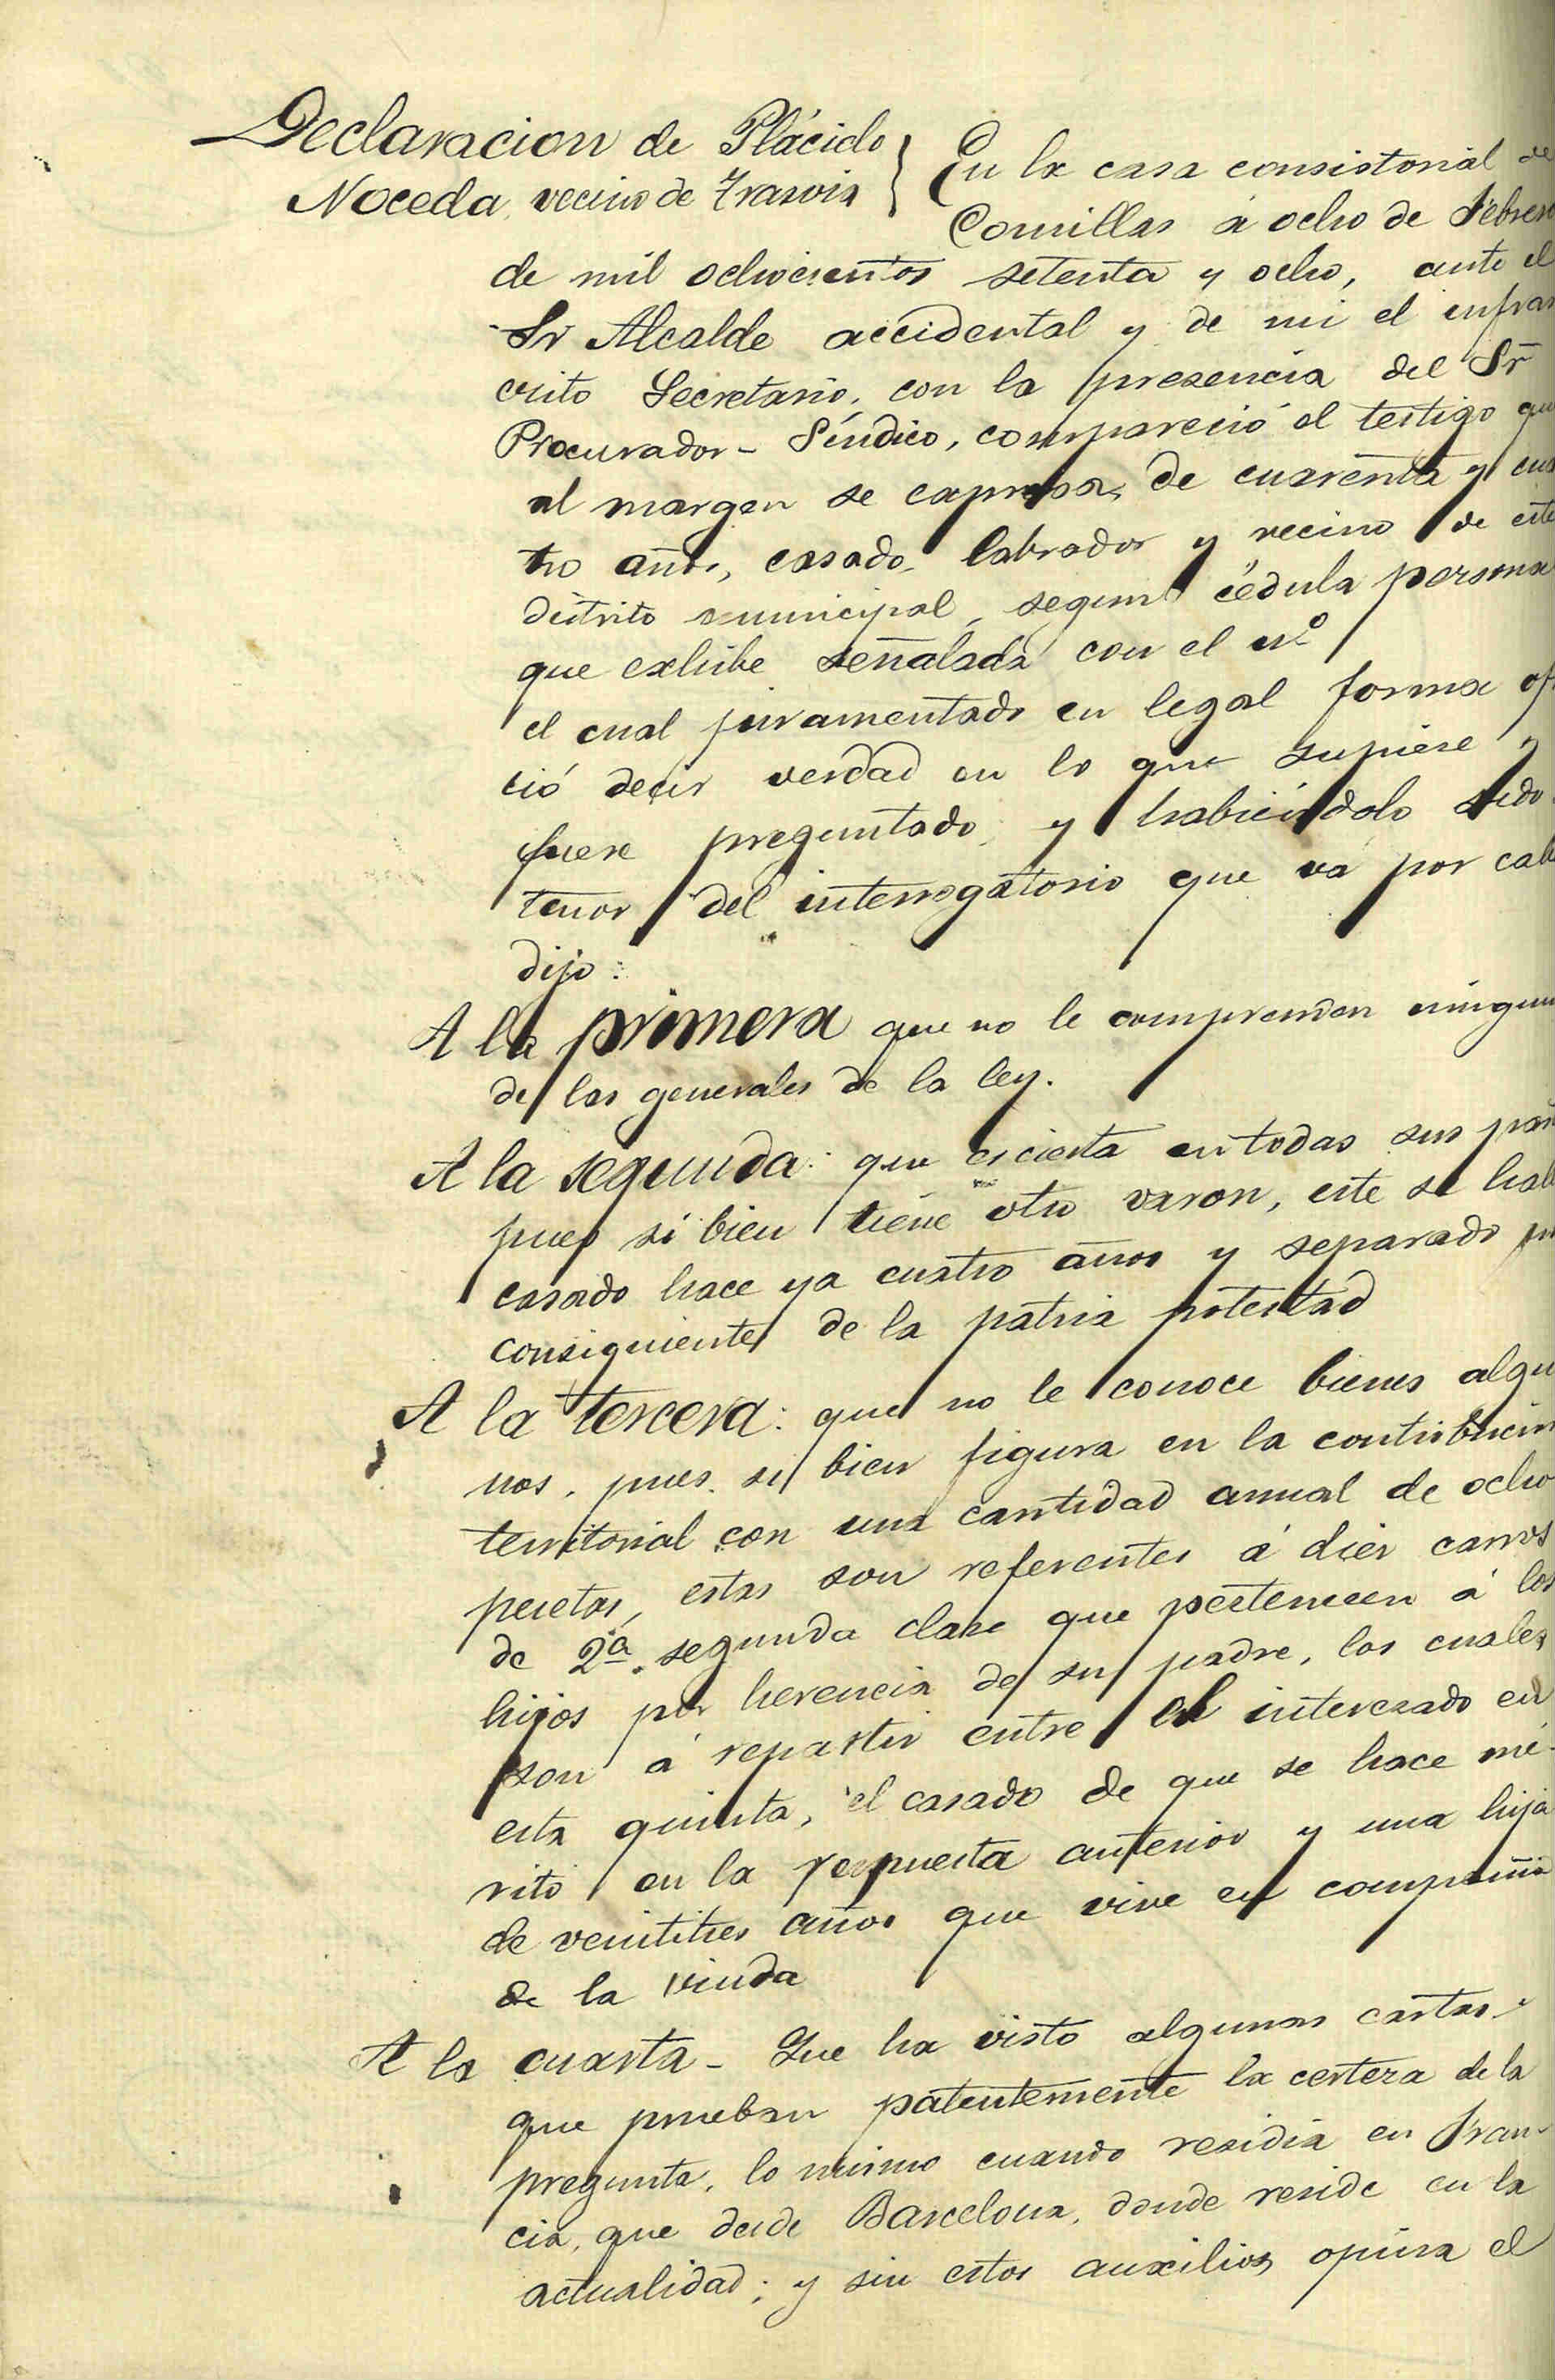 Declaracion de Plácido
Noceda, vecino de Trasvia
En la casa consistorial de
Comillas á ocho de Febrero
de mil ochocientos setenta y ocho, ante el
Sr Alcalde accidental y de mi el infras
crito Secretario, con la presencia del Sr
Procurador - Síndico, compareció el testigo que
al margen se expresa, de cuarenta y cua
tro años, casado, labrador y vecino de este
distrito municipal, segun cédula persona
que exhibe señalada con el nº
el cual juramentado en legal forma of
ció decir verdad en lo que supiere y
fuere preguntado, y habiéndolo sido
tenor del interrogatorio que vá por cabe
dijo:
A la primera que no le comprenden ningun
de las generales de la ley.
A la segunda: que es cierta en todas sus par
pues si bien tiene otro varon, este se hall
casado hace ya cuatro años y separado po
consiguiente de la patria potestad
A la tercera: que no le conoce bienes algu
nos, pues si bien figura en la contribucion
territorial con una cantidad anual de ocho
pesetas, estas son referentes á diez carros
de 2ª segunda clase que pertenecen á los
hijos por herencia de su padre, los cuales
son á repartir entre el interesado en
esta quinta, el casado de que se hace mé-
rito en la respuesta anterior y una hija
de veintitres años que vive en compañia
de la viuda
A la cuarta - Que ha visto algunas cartas
que prueban patentemente la certeza de la
pregunta, lo mismo cuando residia en Fran-
cia, que desde Barcelona, donde reside en la
actualidad; y sin estos auxilios opina el